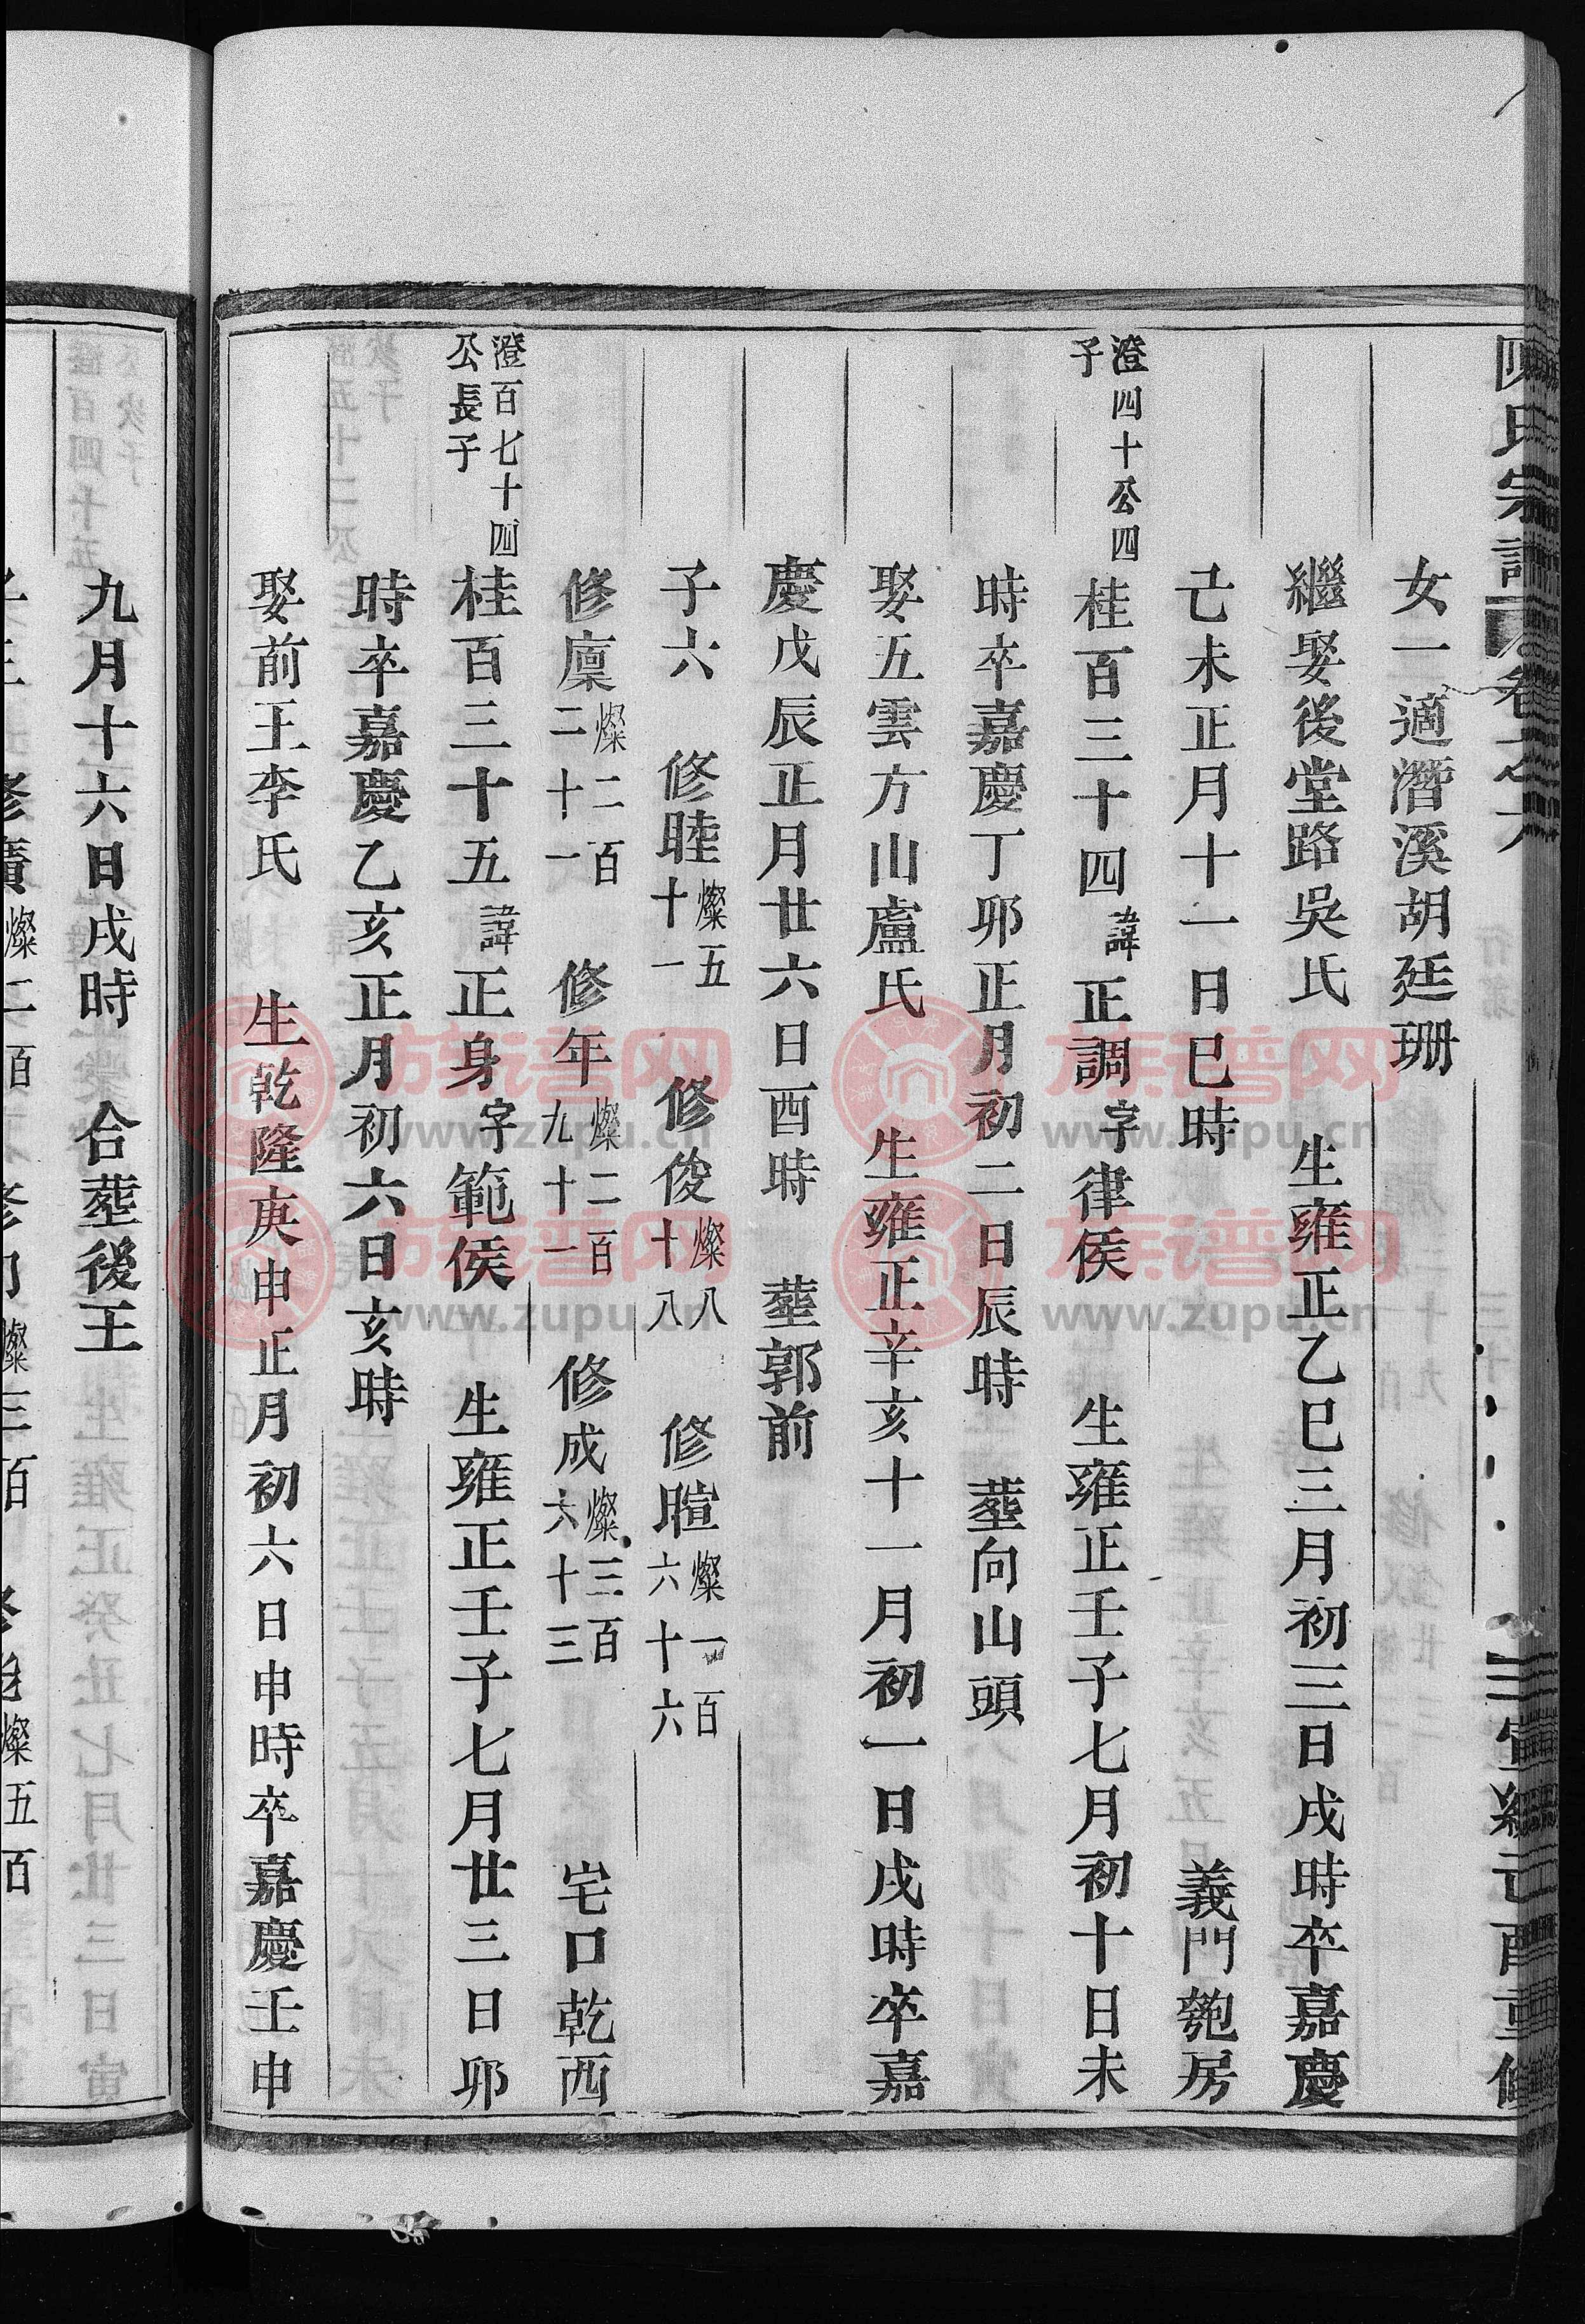 陳氏宗譜 卷之 宣統己酉重修
女一適潛溪胡廷珊
繼娶後堂路吳氏 生雍正乙巳三月初三日戌時卒嘉慶
己未正月十一日巳時 義門匏房
澄四十公四子 桂百三十四 諱正調字律侯 生雍正壬子七月初十日未
時卒嘉慶丁卯正月初二日辰時 塟向山頭
娶五雲方山盧氏 生雍正辛亥十一月初一日戌時卒嘉
慶戊辰正月廿六日酉時 塟郭前
子六 修睦燦五十一 修俊燦八十八 修暄燦一百六十六
修廩燦二百二十一 修年燦二百九十一 修成燦三百六十三 宅口乾西
澄百七十四公長子 桂百三十五 諱正身字範侯 生雍正壬子七月廿三日卯
時卒嘉慶乙亥正月初六日亥時
娶前王李氏 生乾隆庚申正月初六日申時卒嘉慶壬申
九月十六日戌時 合塟後王
族谱网
www.zupu.cn
族谱网
www.zupu.cn
族谱网
www.zupu.cn
族谱网
www.zupu.cn